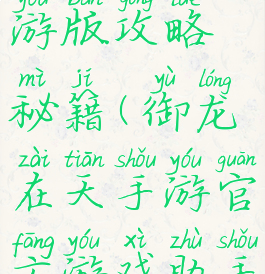 yóu bǎn gōng lüè
游版攻略
mì jí yù lóng
秘籍(御龙
zài tiān shǒu yóu guān
在天手游官
fāng yóu xì zhù shǒu
方游戏助手